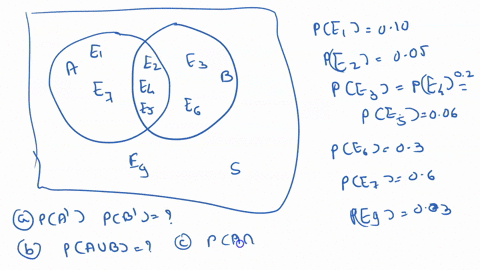 A E₁ E₂ E₃ B
E₇ E₄
E₅ E₆
E₉ S
P(E₁) = 0.10
P(E₂) = 0.05
P(E₃) = P(E₄) = 0.2
P(E₅) = 0.06
P(E₆) = 0.3
P(E₇) = 0.6
P(E₉) = 0.03
(a) P(A') P(B') = ?
(b) P(A∪B) = ? (c) P(A∩